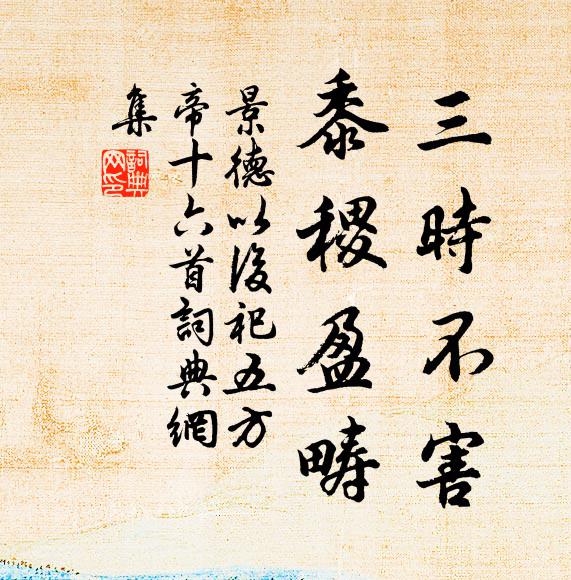 三時不害
黍稷盈疇
景德以後祀五方
帝十六首詞典網
集
詞典
网印